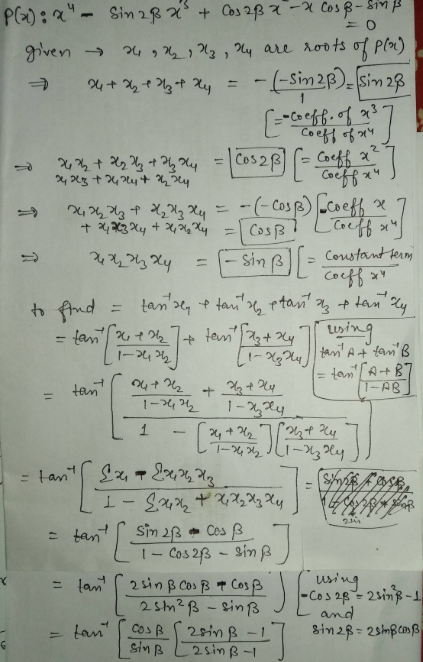 P(x): x⁴ - Sin2β x³ + Cos2β x² - x Cosβ - Sinβ
= 0
given → x₁, x₂, x₃, x₄ are roots of P(x)
⇒ x₁ + x₂ + x₃ + x₄ = -(-Sin2β)/1 = Sin2β
[= -Coeff. of x³ / Coeff of x⁴]
⇒ x₁x₂ + x₂x₃ + x₃x₄ = Cos2β [= Coeff x² / Coeff x⁴]
x₁x₃ + x₁x₄ + x₂x₄
⇒ x₁x₂x₃ + x₂x₃x₄ = -(-Cosβ) [-Coeff x / Coeff x⁴]
+ x₁x₃x₄ + x₁x₂x₄ = Cosβ
⇒ x₁x₂x₃x₄ = -Sinβ [= Constant term / Coeff x⁴]
to find = tan⁻¹x₁ + tan⁻¹x₂ + tan⁻¹x₃ + tan⁻¹x₄
= tan⁻¹[x₁ + x₂ / 1 - x₁x₂] + tan⁻¹[x₃ + x₄ / 1 - x₃x₄]
using
tan⁻¹A + tan⁻¹B
= tan⁻¹[A + B / 1 - AB]
= tan⁻¹[x₁ + x₂ / 1 - x₁x₂ + x₃ + x₄ / 1 - x₃x₄
1 - [x₁ + x₂ / 1 - x₁x₂][x₃ + x₄ / 1 - x₃x₄]]
= tan⁻¹[Σx₁ - Σx₁x₂x₃ / 1 - Σx₁x₂ + x₁x₂x₃x₄] =
= tan⁻¹[Sin2β - Cosβ / 1 - Cos2β - Sinβ]
= tan⁻¹[2sinβ Cosβ - Cosβ / 2sin²β - Sinβ]
[using
-Cos2β = 2sin²β - 1
and
Sin2β = 2sinβCosβ]
= tan⁻¹[Cosβ / Sinβ [2sinβ - 1 / 2sinβ - 1]]